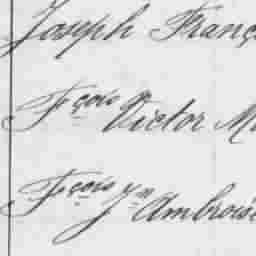 Joseph Franç
Fçois Victor M
Fçois Xm Ambroise